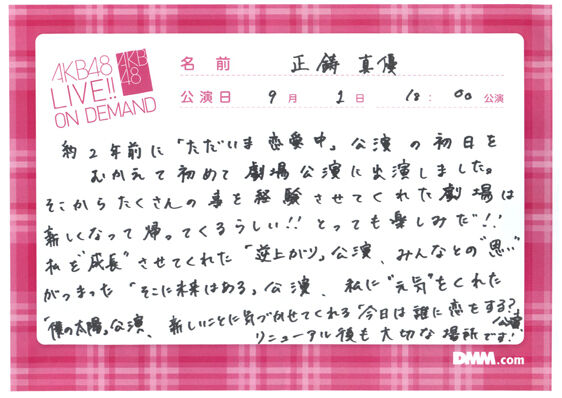 AKB48
LIVE!!
ON DEMAND
AKB
48
名前 正鋳真優
公演日 9月1日 18:00公演
約2年前に「ただいま恋愛中」公演の初日を
むかえて初めて劇場公演に出演しました。
そこからたくさんの事を経験させてくれた劇場は
新しくなって帰ってくるらしい!!とっても楽しみだ!!
私を“成長”させてくれた「逆上がり」公演、みんなとの“思い”
がつまった「そこに未来はある」公演、私に“元気”をくれた
「僕の太陽」公演、新しいことに気づかせてくれる「今日は誰に恋をする?」公演
リニューアル後も大切な場所です!
DMM.com